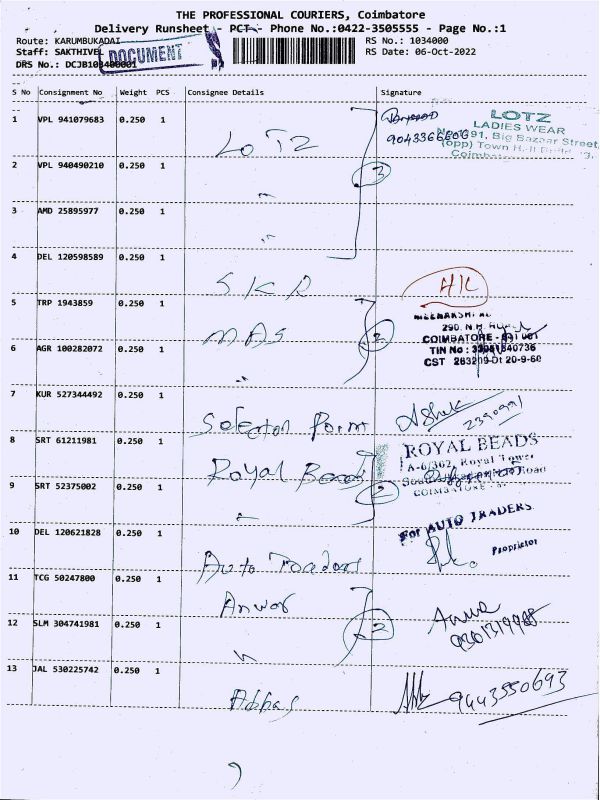 THE PROFESSIONAL COURIERS, Coimbatore
Delivery Runsheet - PCT - Phone No.:0422-3505555 - Page No.:1
Route: KARUMBUKADAI
RS No.: 1034000
Staff: SAKTHIVEL
DOCUMENT
RS Date: 06-Oct-2022
DRS No.: DCJB103400001
S No Consignment No Weight PCS Consignee Details Signature
1 VPL 941079683 0.250 1 LOTZ 9043366606
LOTZ
LADIES WEAR
No. 691, Big Bazaar Street,
(opp) Town Hall
2 VPL 940490210 0.250 1 〃
3
3 AMD 25895977 0.250 1 〃
4 DEL 120598589 0.250 1 SKR
5 TRP 1943859 0.250 1 MAS
2
290, N.H.
COIMBATORE - 641 001
TIN No :
CST 20-9-60
6 AGR 100282072 0.250 1 〃
7 KUR 527344492 0.250 1 Selection Point Ashok
2390991
8 SRT 61211981 0.250 1 Royal Beads
ROYAL BEADS
A-6/362, Royal Tower
Road
COIMBATORE
9 SRT 52375002 0.250 1 〃
2
10 DEL 120621828 0.250 1 Auto Traders
For AUTO TRADERS
Proprietor
11 TCG 50247800 0.250 1 Anwar
12 SLM 304741981 0.250 1 〃
2
13 JAL 530225742 0.250 1 Abbas 9443550693